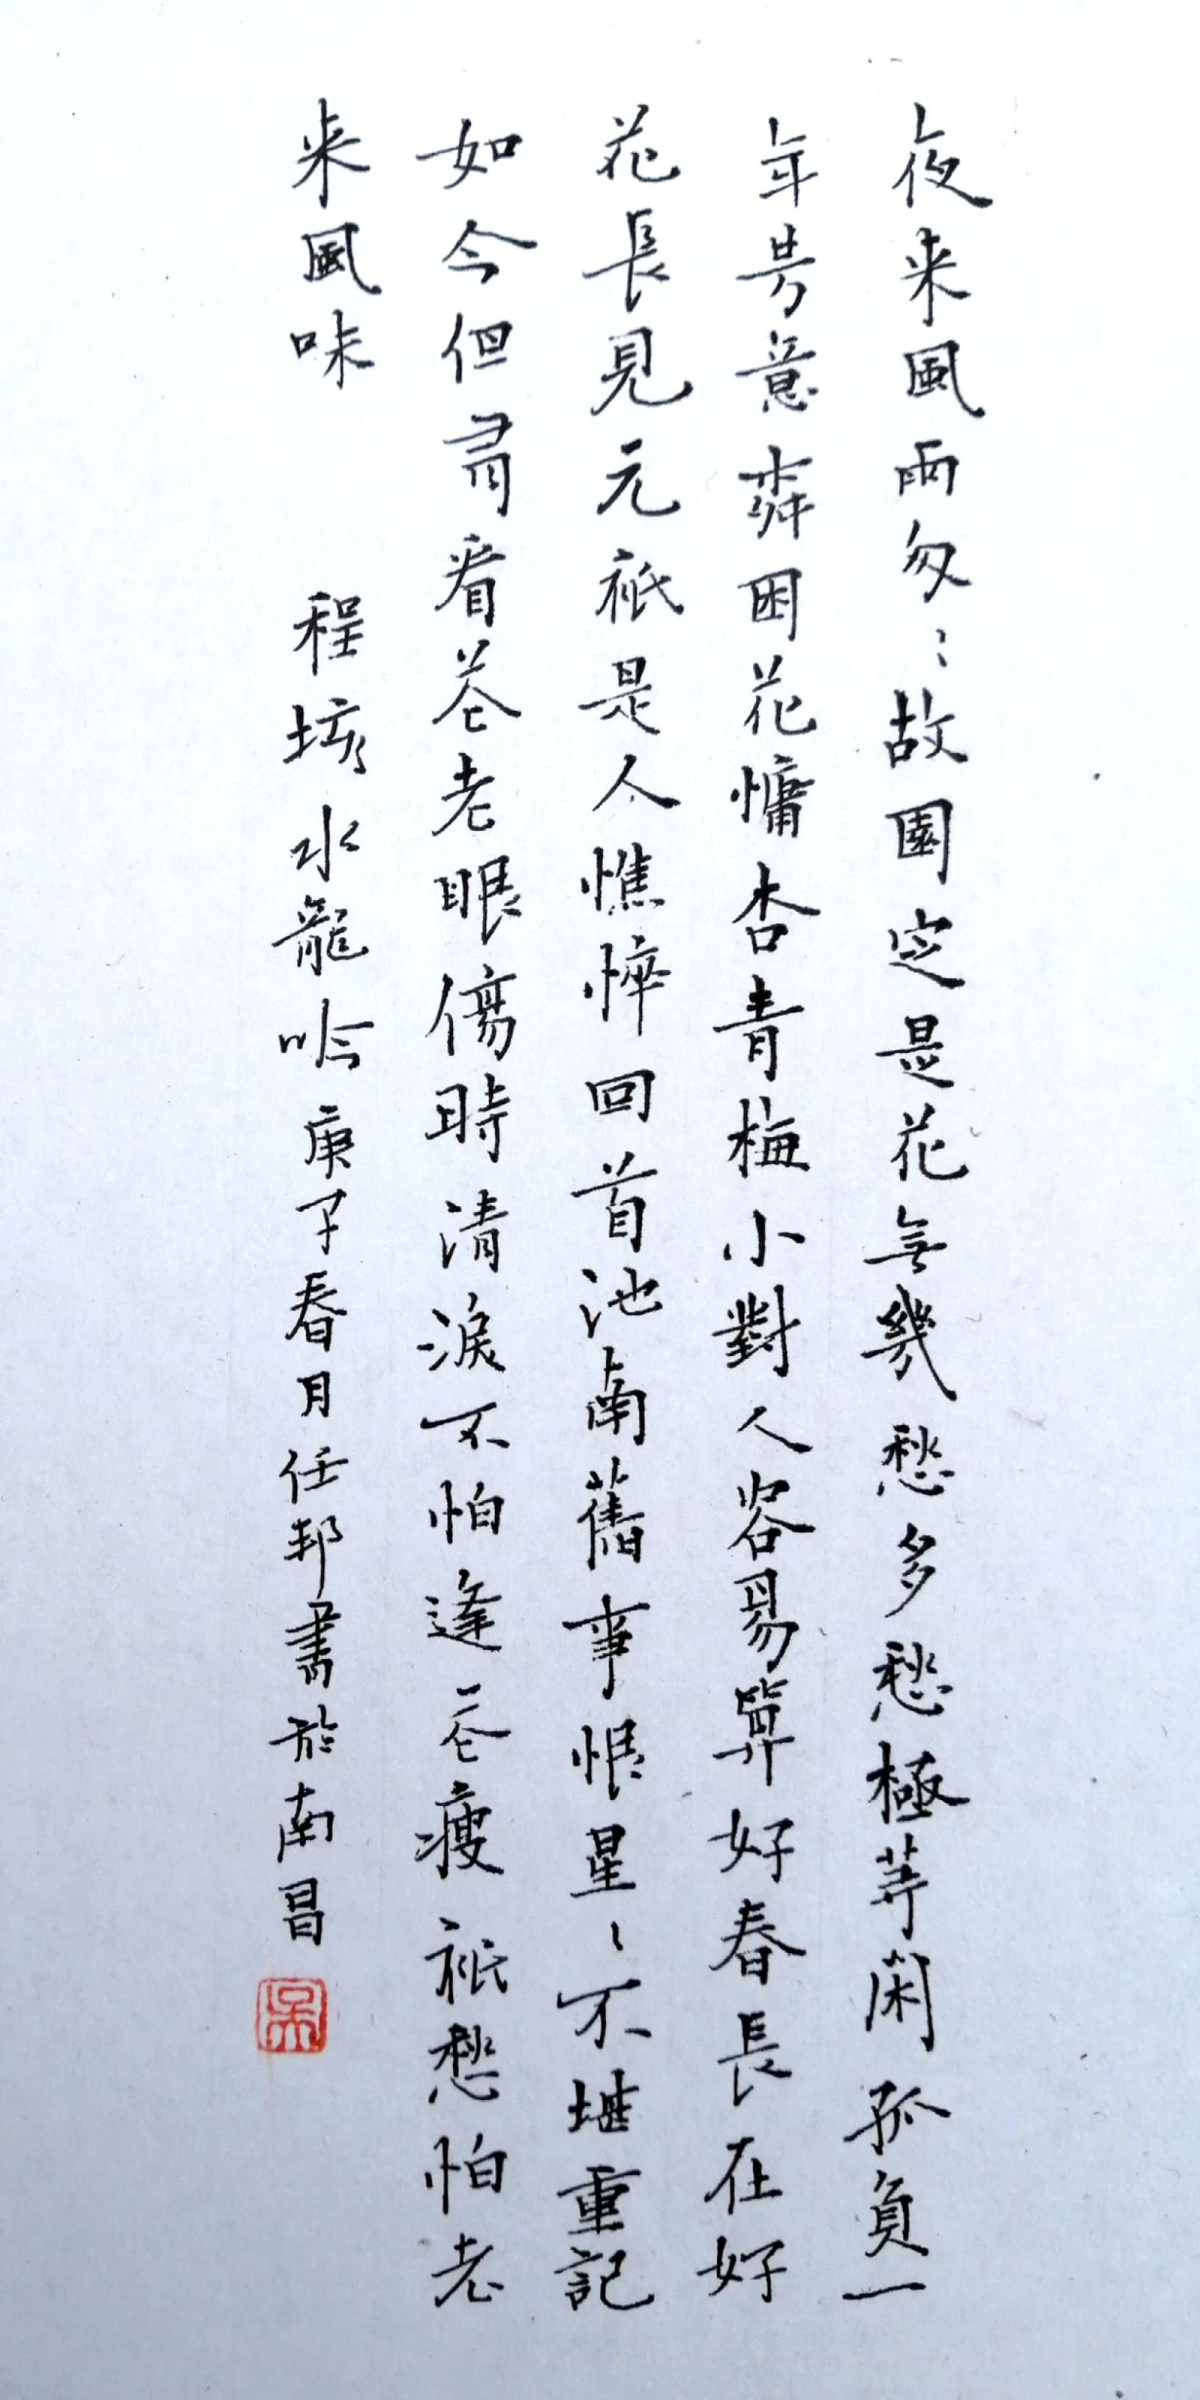 夜来風雨匆〻故園定是花無幾愁多愁極等閑孤負一
年芳意舜困花慵杏青梅小對人容易算好春長在好
花長見元衹是人憔悴回首池南舊事恨星〻不堪重記
如今但尋看花老眼傷時清淚不怕逢花瘦衹愁怕老
来風味 程垓水龍吟庚子春月任邦書於南昌